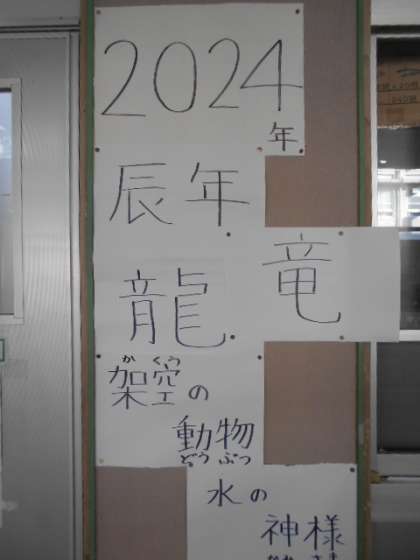 2024
年
辰年
龍
竜
かくう
架空の
動物
どうぶつ
水の
神様